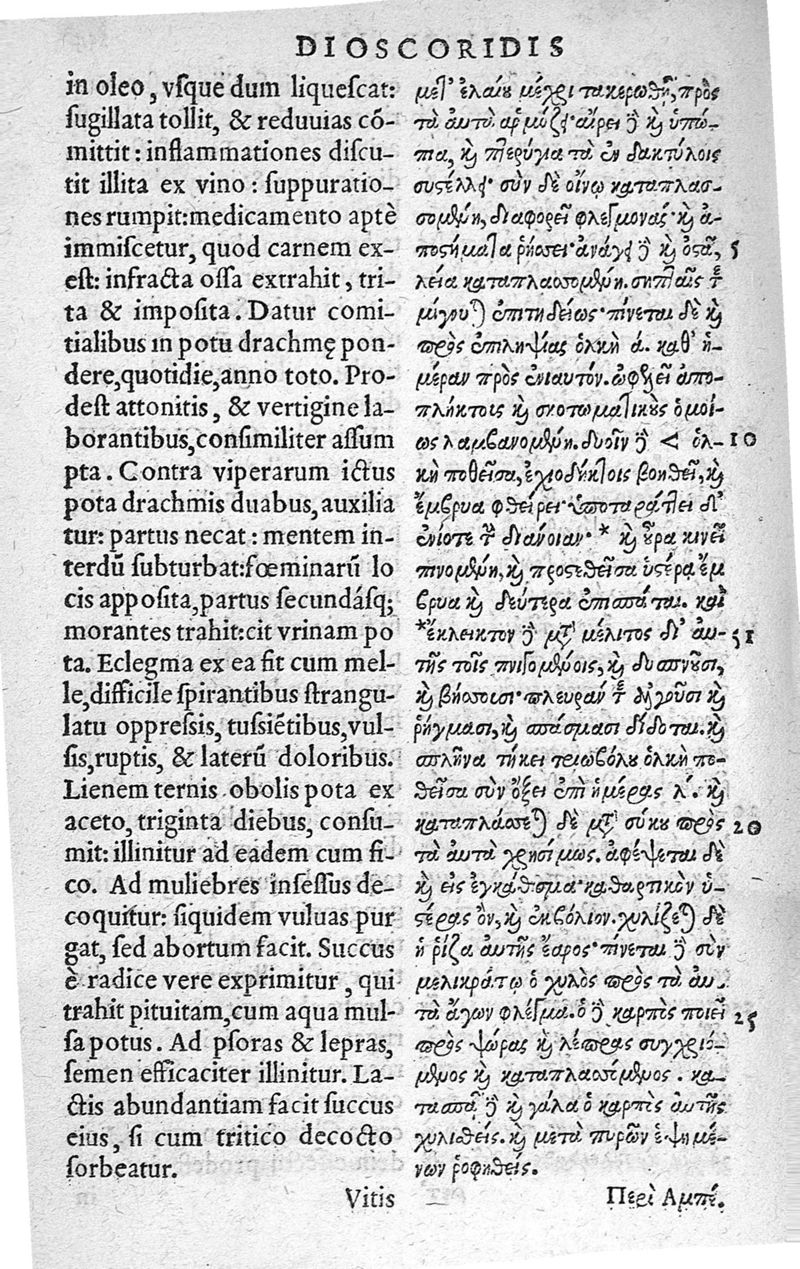 DIOSCORIDIS
in oleo, vſque dum liqueſcat:
ſugillata tollit, & reduuias cō-
mittit: inflammationes diſcu-
tit illita ex vino: ſuppuratio-
nes rumpit: medicamento aptè
immiſcetur, quod carnem ex-
eſt: infracta oſſa extrahit, tri-
ta & impoſita. Datur comi-
tialibus in potu drachmę pon-
dere, quotidie, anno toto. Pro-
deſt attonitis, & vertigine la-
borantibus, conſimiliter aſſum
pta. Contra viperarum ictus
pota drachmis duabus, auxilia
tur: partus necat: mentem in-
terdū ſubturbat: fœminarū lo
cis appoſita, partus ſecundáſq;
morantes trahit: cit vrinam po
ta. Eclegma ex ea fit cum mel-
le, difficile ſpirantibus ſtrangu-
latu oppreſsis, tuſsiētibus, vul-
ſis, ruptis, & laterū doloribus.
Lienem ternis obolis pota ex
aceto, triginta diebus, conſu-
mit: illinitur ad eadem cum fi-
co. Ad muliebres inſeſſus de-
coquitur: ſiquidem vuluas pur
gat, ſed abortum facit. Succus
è radice vere exprimitur, qui
trahit pituitam, cum aqua mul-
ſa potus. Ad pſoras & lepras,
ſemen efficaciter illinitur. La-
ctis abundantiam facit ſuccus
eius, ſi cum tritico decocto
ſorbeatur.
Vitis
μετ' ἐλαίου μέχρι τακερωθῇ, πρὸς
τὰ αὐτὰ ἁρμόζει· αἴρει δὲ καὶ ὑπώ-
πια, καὶ πτερύγια τὰ ἐν δακτύλοις
συστέλλει· σὺν δὲ οἴνῳ καταπλασ-
σομένη, διαφορεῖ φλεγμονάς· καὶ ἀ-
ποστήματα ῥήσσει· ἀνάγει δὲ καὶ ὀστᾶ, 5
λεία καταπλασσομένη. σηπταῖς τε
μίγνυται ἐπιτηδείως· πίνεται δὲ καὶ
πρὸς ἐπιληψίας ὁλκὴ ά. καθ' ἡ-
μέραν πρὸς ἐνιαυτόν. ὠφελεῖ ἀπο-
πλήκτοις καὶ σκοτωματικοὺς ὁμοί-
ως λαμβανομένη. δυοῖν δὲ < ὁλ- 10
κὴ ποθεῖσα, ἐχιοδήκτοις βοηθεῖ, καὶ
ἔμβρυα φθείρει· ὑποταράττει δ'
ἐνίοτε τὴν διάνοιαν· * καὶ οὖρα κινεῖ
πινομένη, καὶ προστεθεῖσα ὑστέρᾳ ἔμ
βρυα καὶ δεύτερα ἐπισπᾶται. καὶ
*ἔκλεικτον δὲ μετὰ μέλιτος δι' αὐ- 15
τῆς τοῖς πνιγομένοις, καὶ δυσπνοῦσι,
καὶ βήσσοισι· πλευράν τε ἀλγοῦσι καὶ
ῥήγμασι, καὶ σπάσμασι δίδοται. καὶ
σπλῆνα τήκει τριωβόλου ὁλκὴ πο-
θεῖσα σὺν ὄξει ἐπὶ ἡμέρας λ'. καὶ
καταπλάσσεται δὲ μετὰ σύκου πρὸς 20
τὰ αὐτὰ χρησίμως. ἀφέψεται δὲ
καὶ εἰς ἐγκάθισμα· καθαρτικὸν ὑ-
στέρας ὂν, καὶ ἐκβόλιον. χυλίζεται δὲ
ἡ ῥίζα αὐτῆς ἔαρος· πίνεται δὲ σὺν
μελικράτῳ ὁ χυλὸς πρὸς τὰ αὐ-
τὰ ἄγων φλέγμα. ὁ δὲ καρπὸς ποιεῖ 25
πρὸς ψώρας καὶ λέπρας συγχριό-
μενος καὶ καταπλασσόμενος. κα-
τασπᾷ δὲ καὶ γάλα ὁ καρπὸς αὐτῆς
χυλισθεὶς. καὶ μετὰ πυρῶν ἑψημέ-
νων ῥοφηθείς.
Περὶ Αμπέ.